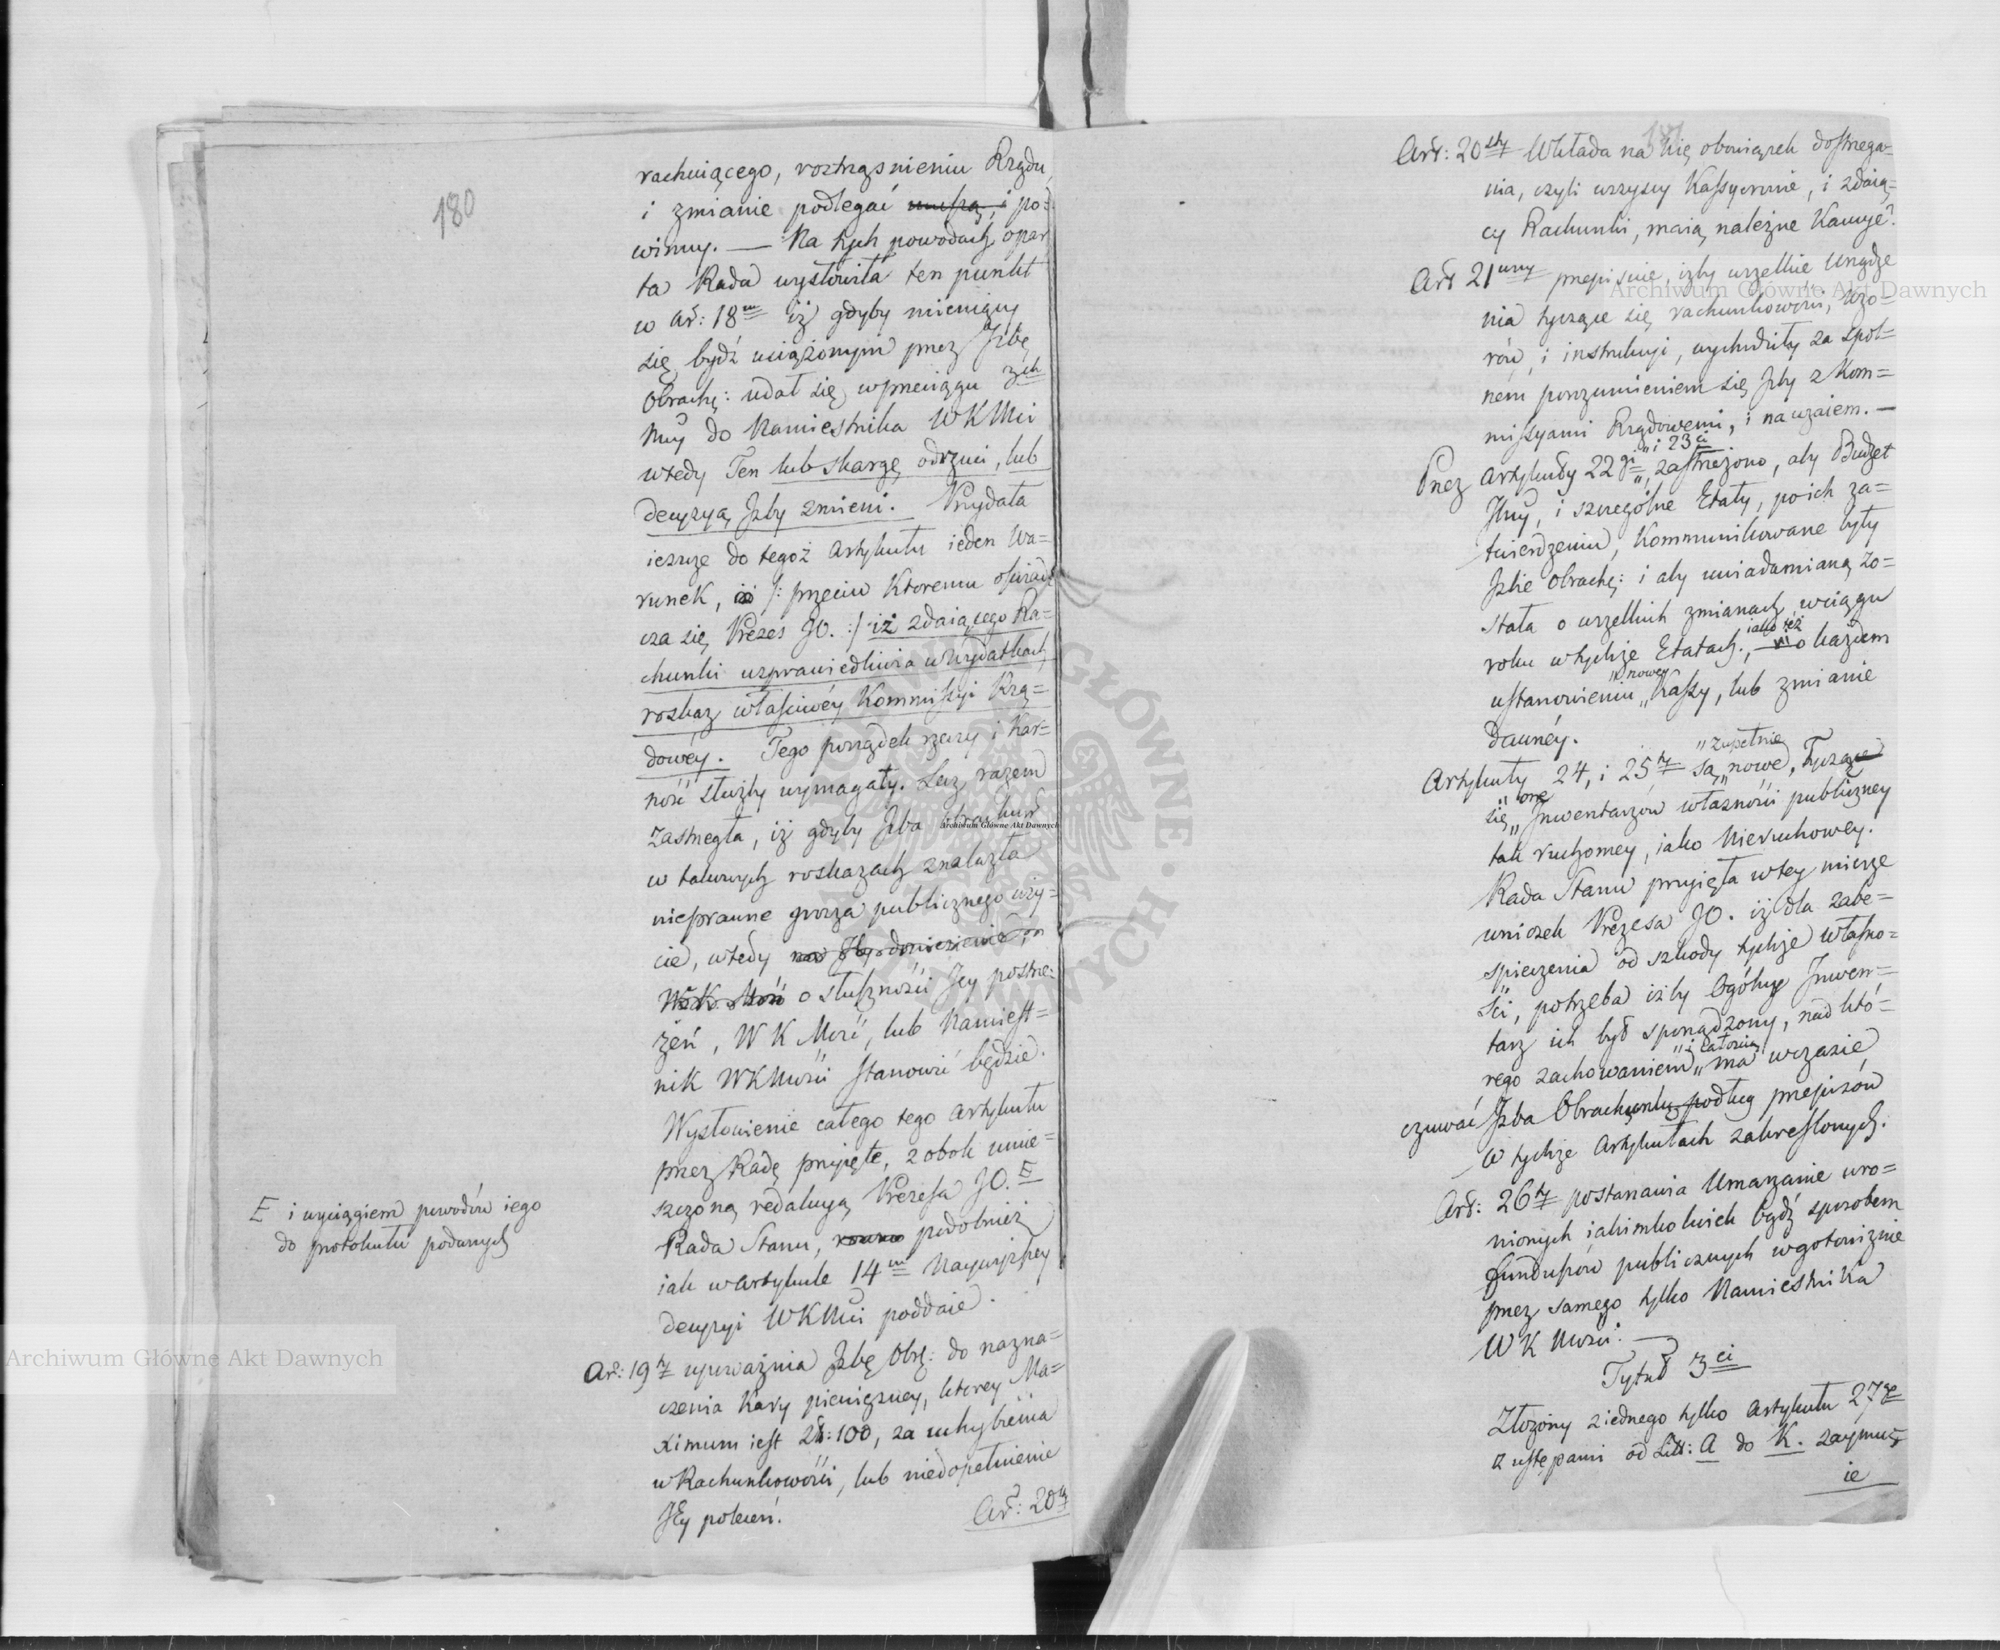 180
rachuiącego, roztrząśnieniu Rządu,
i zmianie podlegać muszą, i po=
winny. — Na tych powodach opar
ta Rada wysłowiła ten punkt
w Ar: 18m iż gdyby mieniący
się bydź uciążonym przez Izbę
Obrachę: udał się w przeciągu 3ch
Mcy do Namiestnika WKMci
wtedy Ten lub skargę odrzuci, lub
decyzyą Izby zmieni. Przydała
ieszcze do tegoż Artykułu ieden Wa=
runek, /: przeciw ktoremu oświad
cza się Prezes JO. :/ iż zdaiącego Ra=
chunki usprawiedliwia w Wydatkach
rozkaz właściwéy Kommissyi Rzą=
dowéy. Tego porządek rzeczy i kar=
ność służby wymagały. Lecz razem
zastrzegła, iż gdyby Izba Obrachun
w takowych roskazach znalazła
nieprawne grosza publicznego uży=
cie, wtedy o słuszności Jey postrze=
żeń, W K Mość, lub Namiest=
nik WKMości stanowić będzie.
Wysłowienie całego tego Artykułu
przez Radę przyięte, z obok umie=
szczoną redakcyą Prezesa JO. E
Rada Stanu, podobnież
iak w Artykule 14m Naywyższey
decyzyi WKMci poddaie.
E i wyciągiem powodów iego
do protokułu podanych
Ar: 19ty upoważnia Izbę Obr: do nazna=
czenia Kary pieniężney, ktorey Ma=
ximum iest Zł: 100, za uchybienia
w Rachunkowości, lub niedopełnienie
Jéy poleceń.
Ar: 20ty
Art: 20sty Wkłada na nię obowiązek dostrzega=
nia, czyli wszyscy Kassyerowie, i zdaią=
cy Rachunki, maią należne Kaucye?
Art 21wszy przepisuie, iżby wszelkie Urządze
nia tyczące się rachunkowości, wzo=
rów, i instrukcyi, wychodziły za spól=
ném porozumieniem się Izby z Kom=
missyami Rządowemi, i nawzaiem. —
„ i 23ci
Przez Artykuły 22gi „ zastrzeżono, aby Budżet
Jlny, i szczególne Etaty, po ich za=
twierdzeniu, Kommunikowane były
Izbie Obrachę: i aby uwiadamianą zo=
stała o wszelkich zmianach w ciągu
iako też
roku w tychże Etatach, o każdem
„ nowey
ustanowieniu „ Kassy, lub zmianie
dawnéy.
„ zupełnie
Artykuły 24, i 25ty są „ nowe, tyczą
„ one
się „ Inwentarzów własności publiczney
tak ruchomey, iako Nieruchowey.
Rada Stanu przyięła w tey mierze
wniosek Prezesa JO. iż dla zabe=
spieczenia od szkody tychże własno=
ści, potrzeba iżby Ogólny Inwen=
tarz ich był sporządzony, nad któ=
„ i całością
rego zachowaniem „ ma w czasie
czuwać Izba Obrachunk: podług przepisów
w tychże Artykułach zakreślonych.
Art: 26ty postanawia Umarzanie uro=
nionych iakimkolwiek bądź sposobem
Funduszów publicznych w gotowiznie
przez samego tylko Namiestnika
W K Mości. —
Tytuł 3ci
Złożony z iednego tylko Artykułu 27go
z ustępami od Litt: A do K. zaymu=
ie
Archiwum Główne Akt Dawnych
Archiwum Główne Akt Dawnych
Archiwum Główne Akt Dawnych